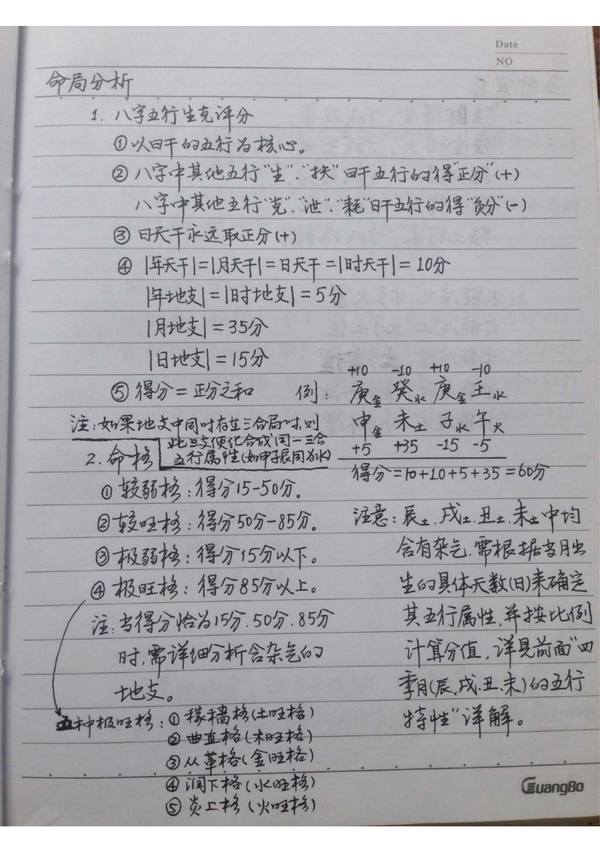 Date
NO
命局分析
1. 八字五行生克评分
①以日干的五行为核心。
②八字中其他五行"生"、"扶"日干五行的得"正分"(+)
八字中其他五行"克"、"泄"、"耗"日干五行的得"负分"(-)
③日天干永远取正分(+)
④ |年天干|=|月天干|=日天干=|时天干|=10分
|年地支|=|时地支|=5分
|月地支|=35分
|日地支|=15分
⑤得分=正分之和
例:
+10 -10 +10 -10
庚金 癸水 庚金 壬水
申金 未土 子水 午火
+5 +35 -15 -5
得分=10+10+5+35=60分
注:如果地支中同时存在三合局时,则
此三支便化合成同一三合
五行属性(如申子辰同为水)
2. 命格
①较弱格:得分15-50分。
②较旺格:得分50分-85分。
③极弱格:得分15分以下。
④极旺格:得分85分以上。
注:当得分恰为15分.50分.85分
时,需详细分析含杂气的
地支。
五种极旺格:①稼穑格(土旺格)
②曲直格(木旺格)
③从革格(金旺格)
④润下格(水旺格)
⑤炎上格(火旺格)
注意:辰土.戌土.丑土.未土中均
含有杂气,需根据当月出
生的具体天数(日)来确定
其五行属性,并按比例
计算分值,详见前面"四
季月(辰.戌.丑.未)的五行
特性"详解。
GuangBo